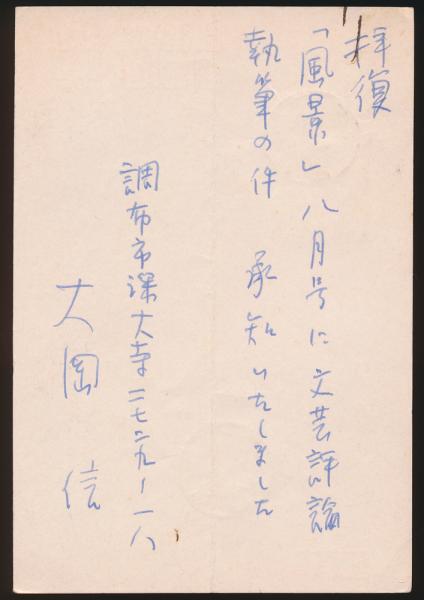 拝復
「風景」八月号に文芸評論
執筆の件　承知いたしました
調布市深大寺二七二九ー一八
大岡　信